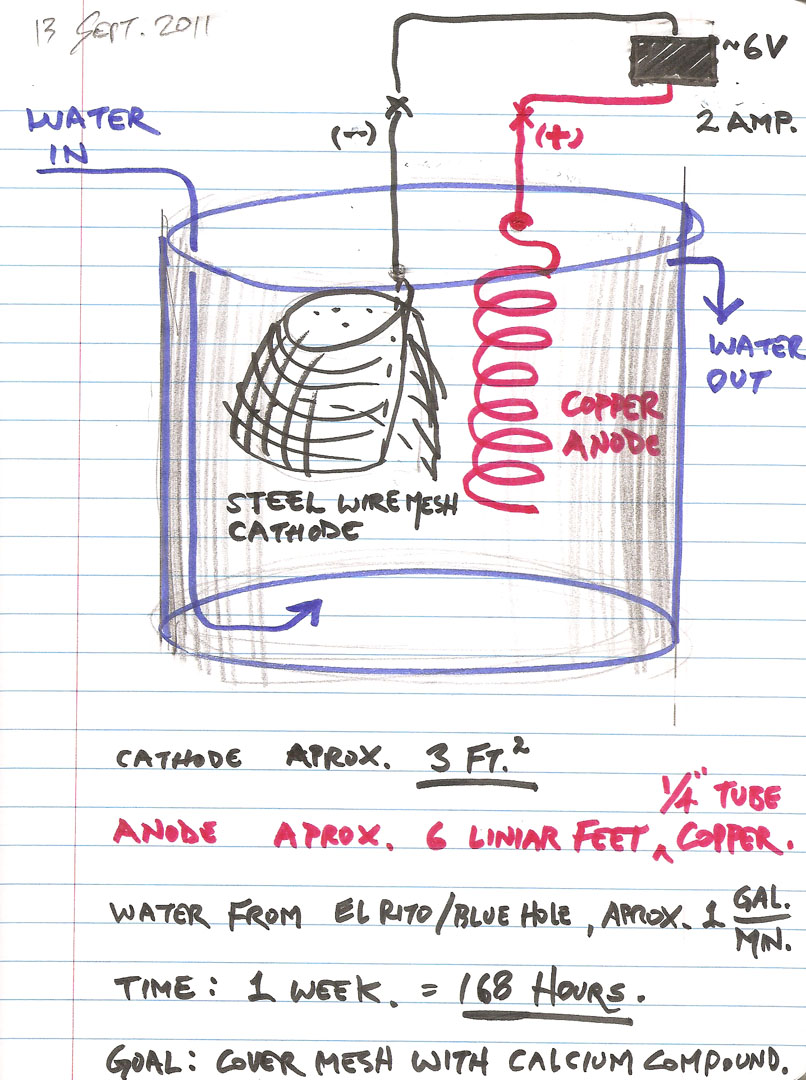 13 SEPT. 2011
~6V
2 AMP.
WATER
IN
(-)
(+)
WATER
OUT
COPPER
ANODE
STEEL WIRE MESH
CATHODE
CATHODE APROX. 3 FT.²
1/4" TUBE
ANODE APROX. 6 LINIAR FEET ^ COPPER.
WATER FROM EL RITO/BLUE HOLE, APROX. 1 GAL./MIN.
TIME: 1 WEEK. = 168 HOURS.
GOAL: COVER MESH WITH CALCIUM COMPOUND.